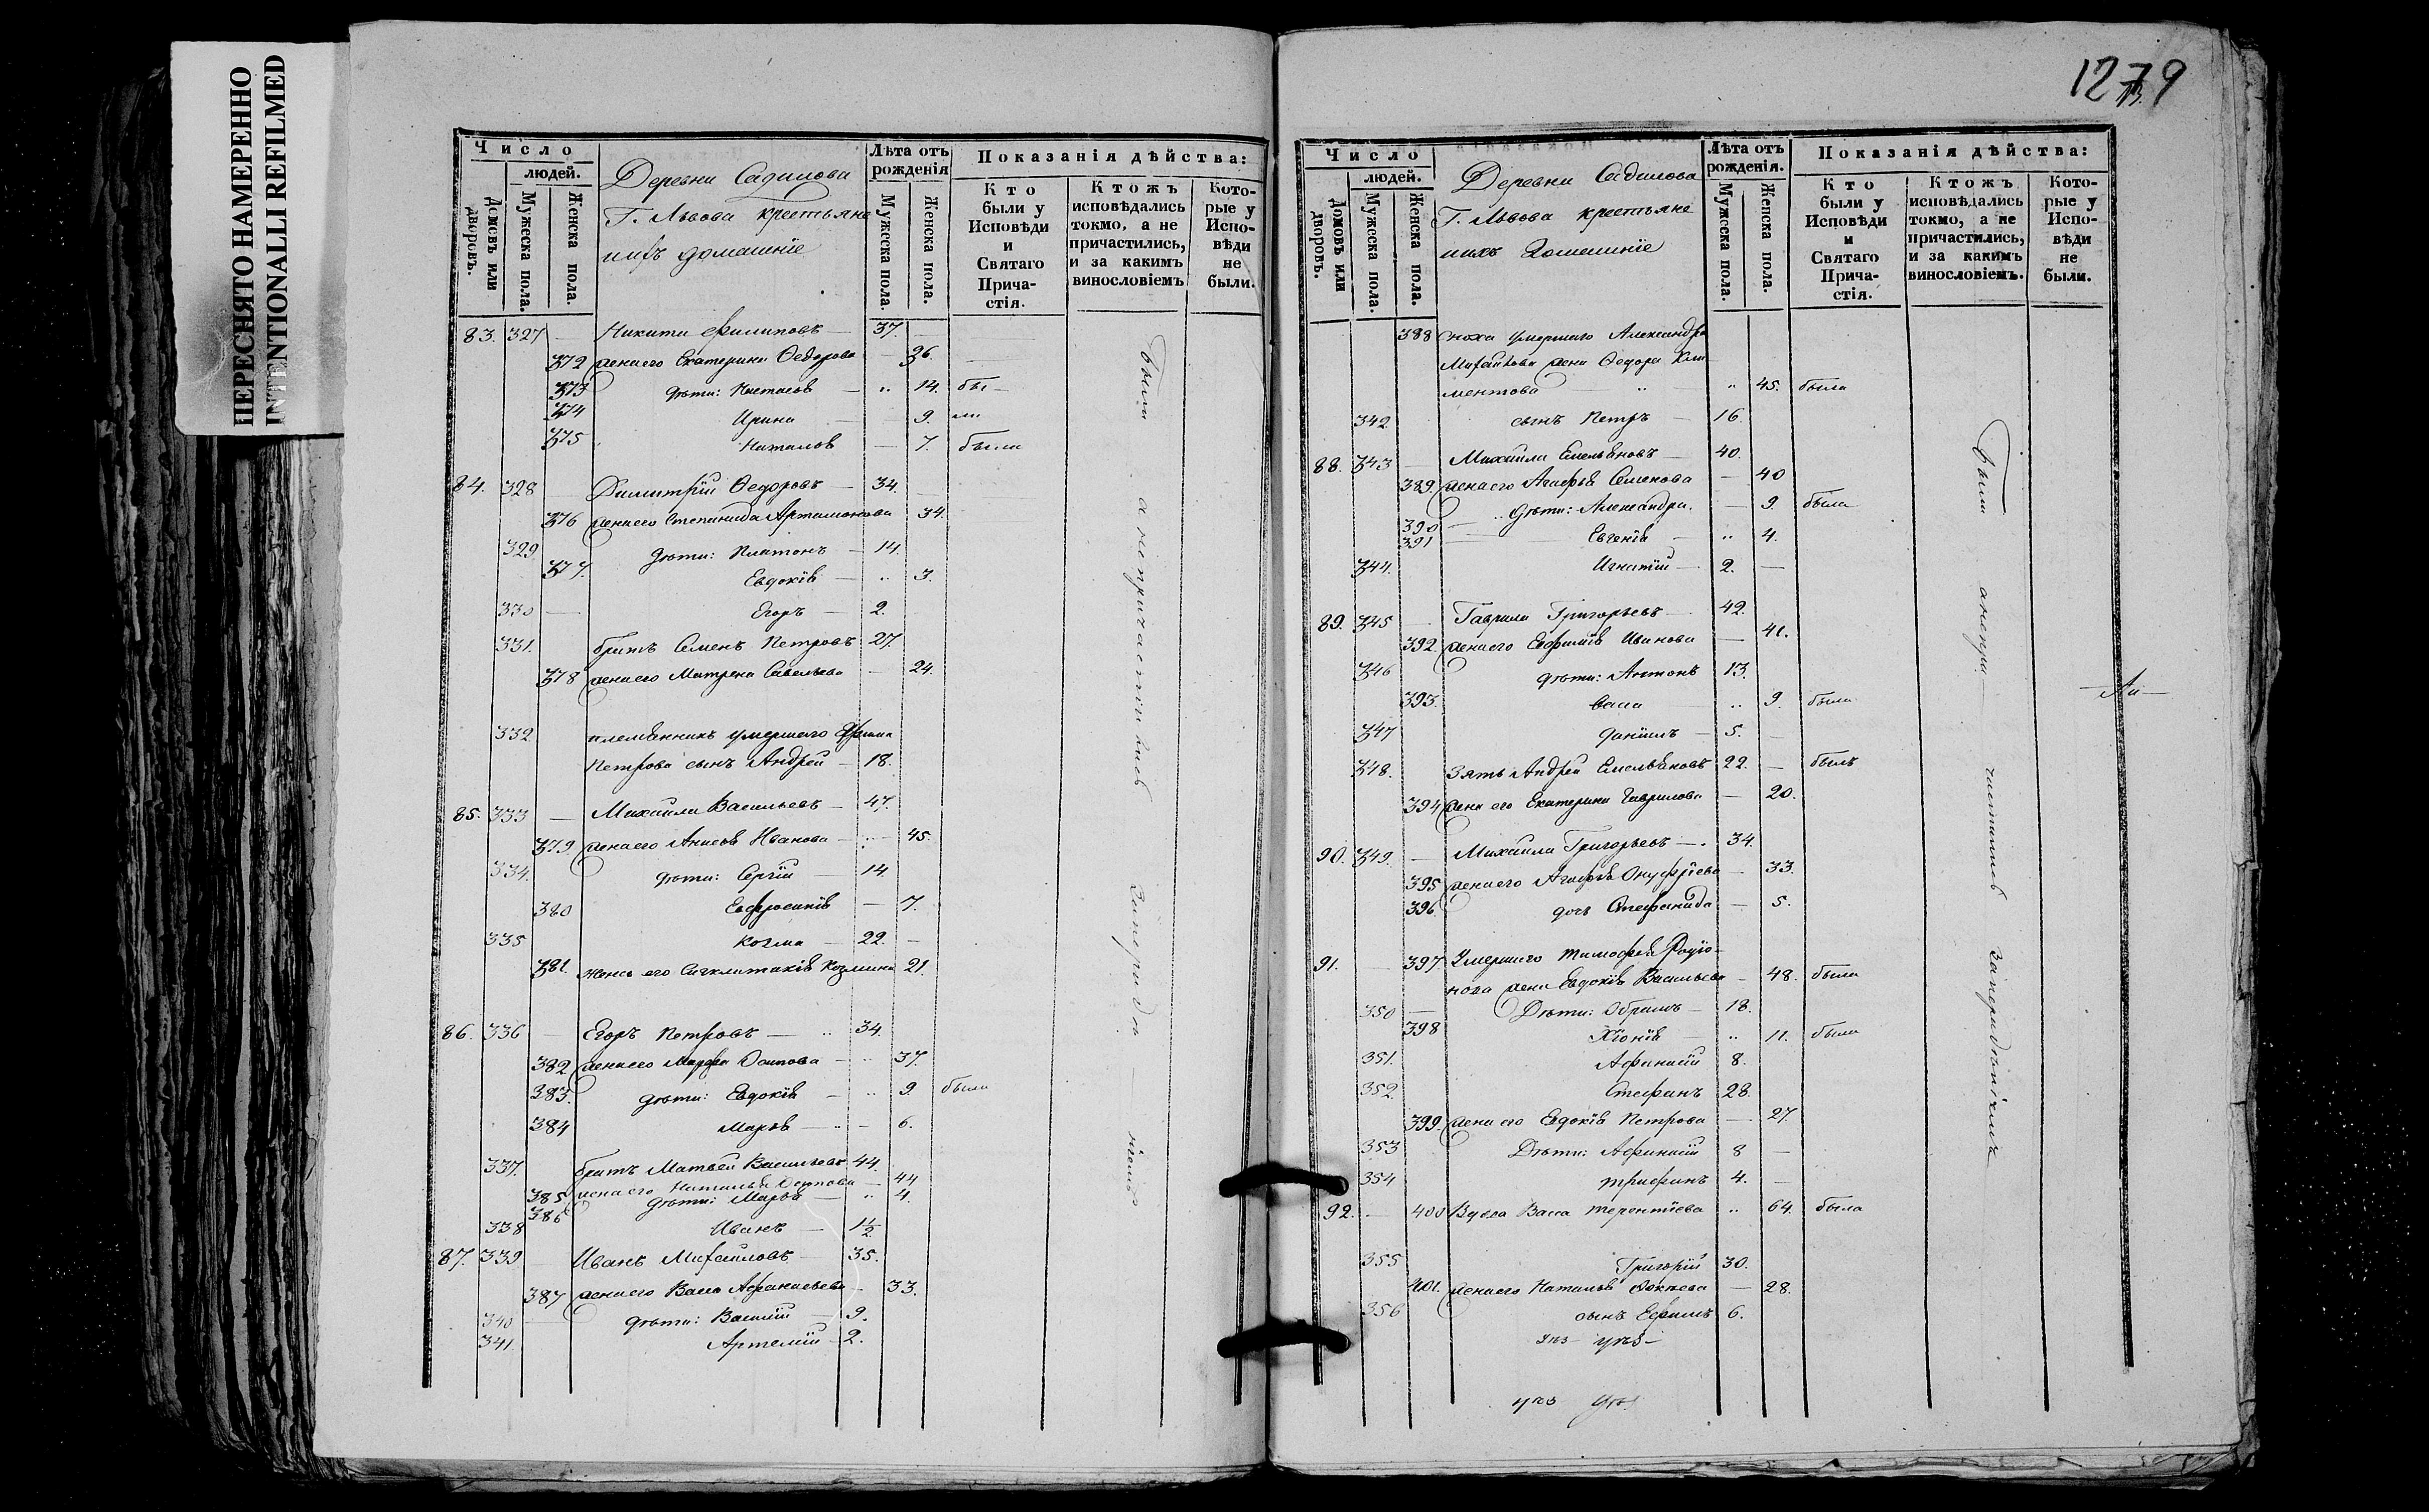 ПЕРЕСНЯТО НАМЕРЕННО
INTENTIONALLI REFILMED
1279
Число
людей.
Домовъ или дворовъ.
Мужеска пола.
Женска пола.
Деревни Садилова
Г. Львова крестьяне
ихъ домашніе
Лѣта отъ рожденія
Мужеска пола.
Женска пола.
Показанія дѣйства:
Кто были у Исповѣди и Святаго Причастія.
Ктожъ исповѣдались токмо, а не причастились, и за какимъ винословіемъ
Которые у Исповѣди не были.
83. 327 — Никита Филиповъ — 37.
372 жена его Екатерина Ѳедорова — 36.
373 дѣти: Настасья — 14. бы-
374 Ирина 9. ли
375 Наталья — 7. была
84. 328 Димитрій Ѳедоровъ — 34.
376 жена его Степанида Артамонова 34.
329 дѣти: Платонъ — 14.
377. Евдокія — 3.
330 — Егоръ — 2.
331. братъ Семенъ Петровъ 27.
378 жена его Матрена Савельева — 24.
332 племянникъ умершаго
Петрова сынъ Андрей — 18.
85. 333 — Михаила Васильевъ — 47.
379 жена его Анисья Иванова — 45.
334. дѣти: Сергій — 14
380 Евфросинія — 7.
335 Козма — 22. —
381. жена его Сигклитикія Козмина 21.
86. 336 — Егоръ Петровъ — 34.
382 жена его Марфа Осипова — 37.
383. дѣти: Евдокія — 9. была
384 Марья — 6.
337. братъ Матвей Васильевъ 44.
385 жена его Наталья Осипова — 44
386 дѣти: Марья — 4.
338 Иванъ — 1½
87. 339 Иванъ Михаиловъ 35.
387 жена его Васса Афанасьева 33.
340 — дѣти: Васил�ій — 9.
341 Артемій — 2.
были а не причастились за нерадѣніемъ
Число
людей.
Домовъ или дворовъ.
Мужеска пола.
Женска пола.
Деревни Садилова
Г. Львова крестьяне
ихъ домашніе
Лѣта отъ рожденія.
Мужеска пола.
Женска пола.
Показанія дѣйства:
Кто были у Исповѣди и Святаго Причастія.
Ктожъ исповѣдались токмо, а не причастились, и за какимъ винословіемъ.
Которые у Исповѣди не были.
388 сноха умершаго Александра
Михайлова жена Ѳедора Кли
ментова 45. была
342. сынъ Петръ — 16.
88. 343 — Михаила Емельяновъ — 40.
389. жена его Агафья Семенова — 40
390 — дѣти: Александра. — 9. была
391 Евгенія — 4.
344. Игнатій — 2. —
89. 345 — Гаврила Григорьевъ — 42.
392 жена его Евфимія Иванова — 41.
346 дѣти: Антонъ 13.
393. Васса 9. была
347 Даніилъ — 5. —
348. Зять Андрей Емельяновъ 22. — былъ
394 жена его Екатерина Гаврилова — 20.
90. 349. — Михаила Григорьевъ — 34.
395 жена его Агафья Онуфріева — 33.
396 дочь Стефанида — 5.
91. — 397 Умершаго Тимофея Родіо-
нова жена Евдокія Васильева — 48. была
350 — Дѣти: Абрамъ — 18.
398 Хіонія — 11. была
351. Афанасій 8.
352 Стефанъ 28.
399. жена его Евдокія Петрова — 27.
353 Дѣти: Афанасій 8 —
354 Трифонъ 4. —
92. — 400 Вдова Васса Терентіева 64. была
355 Григорій 30.
401. жена его Наталья Фокеева — 28.
356 сынъ Ефимъ 6.
были а не причастились за нерадѣніемъ